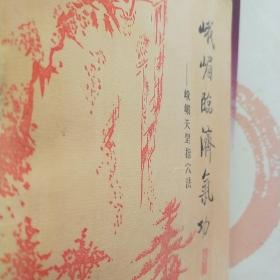 峨嵋临济氣功
——峨嵋天罡指穴法